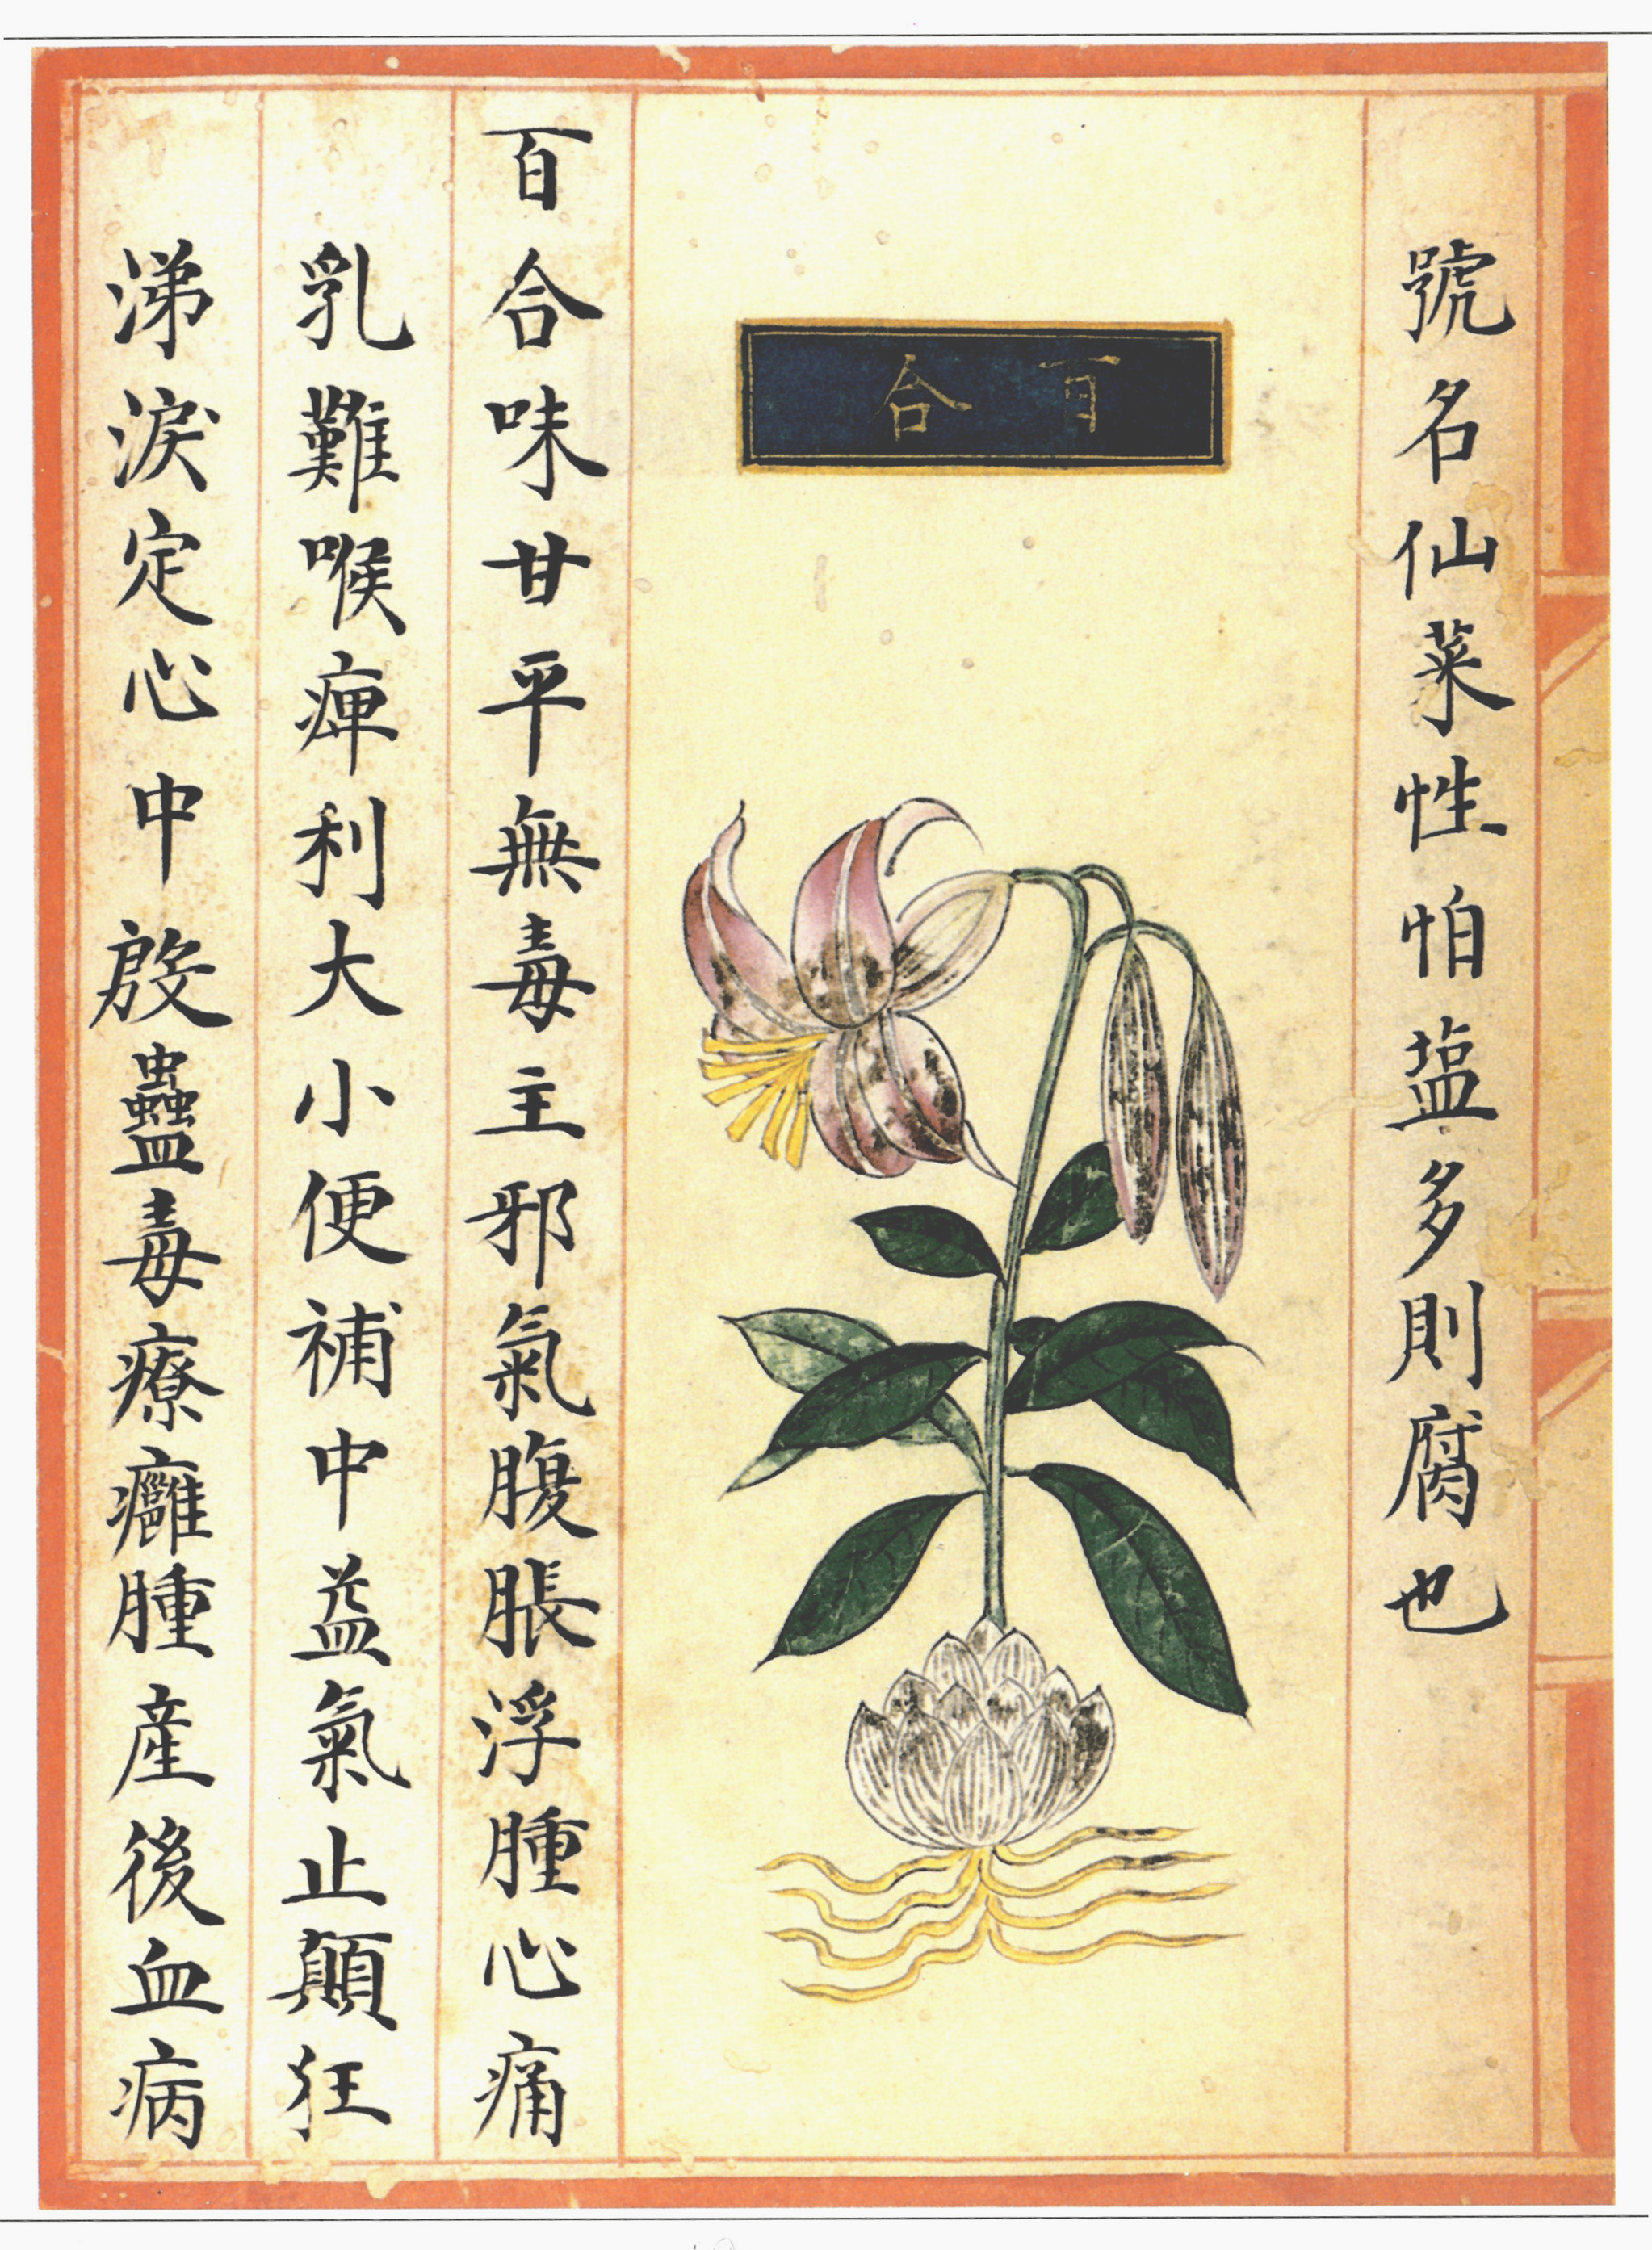 號名仙菜性怕塩多則腐也
百合
百合味甘平無毒主邪氣腹脹浮腫心痛
乳難喉痺利大小便補中益氣止顛狂
涕淚定心中殺蠱毒療癰腫產後血病